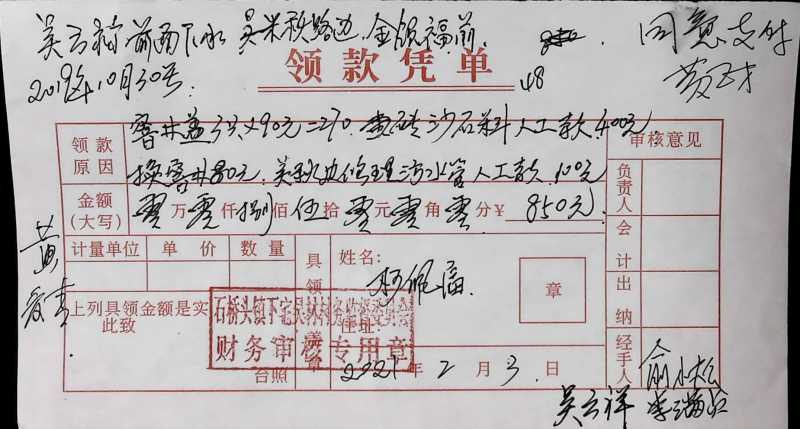 吴云祥前面下水 吴米秋路边 金银福前 同意支付
2019年10月30号
领款凭单
48
领款原因
窨井盖3只×90元=270 沙石料人工款400元
换窨井80元 吴秋边修理污水管人工款100元
审核意见
负责人
会计
出纳
经手人
金额(大写) 零万零仟捌佰伍拾零元零角零分¥ 850元
计量单位 单价 数量
具领
姓名:
章
上列具领金额是实
此致
台照
住址
石桥头镇下宅吴村村务监督委员会
财务审核专用章
盖章
2021年2月3日
俞小松
吴云祥